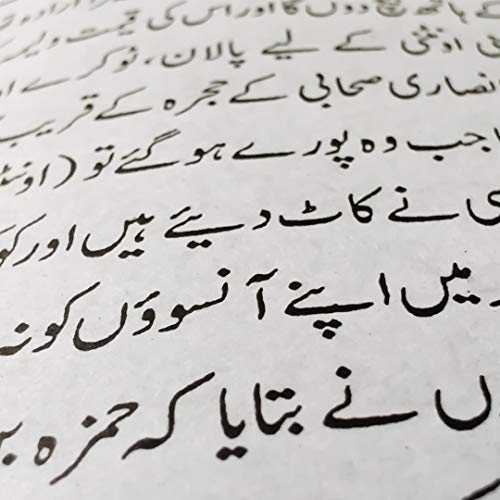 کے ہاتھ بیچ دوں گا اور اس کی قیمت ولیمہ
اونٹنی کے لیے پالان، ٹوکرے
انصاری صحابی کے حجرہ کے قریب
جب وہ پورے ہو گئے تو (
نے کاٹ دیئے ہیں اور
میں اپنے آنسوؤں کو نہ
نے بتایا کہ حمزہ